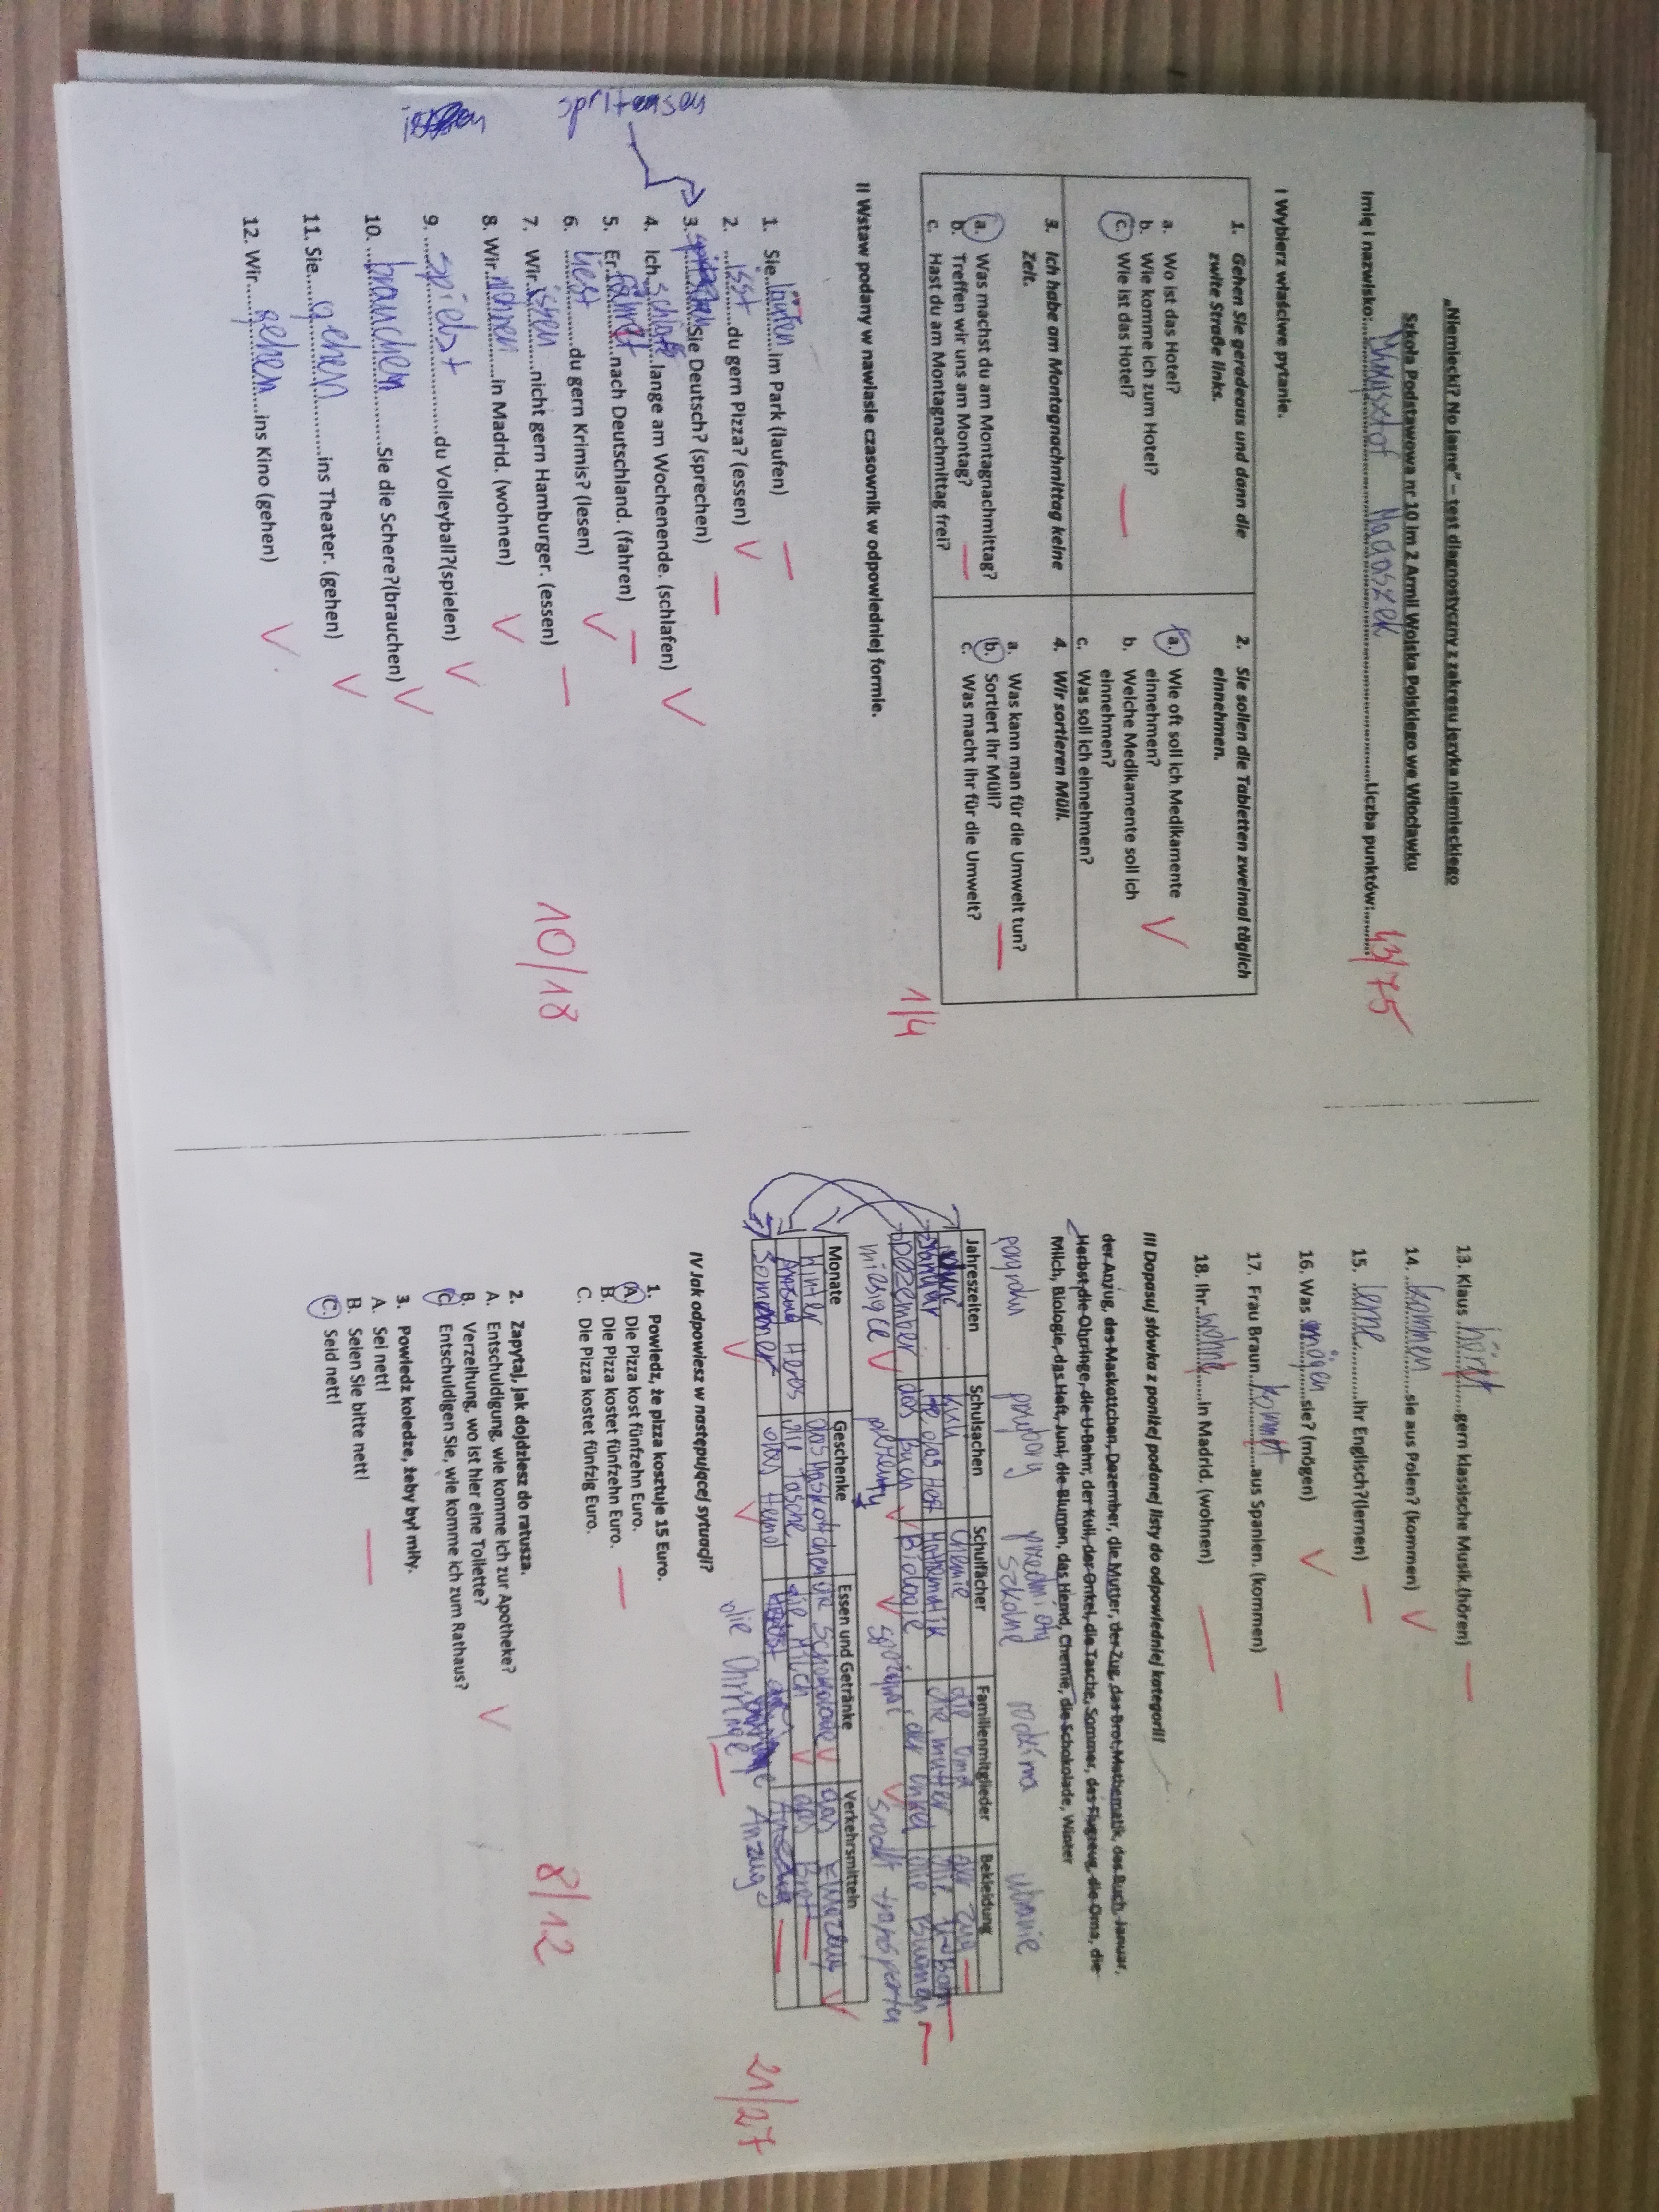 „Niemiecki? No jasne" – test diagnostyczny z zakresu języka niemieckiego
Szkoła Podstawowa nr 10 im 2 Armii Wojska Polskiego we Włocławku
Imię i nazwisko:..............Liczba punktów:..... 43/75
I Wybierz właściwe pytanie.
1. Gehen Sie geradeaus und dann die
zwite Straße links.
a. Wo ist das Hotel?
b. Wie komme ich zum Hotel?
c. Wie ist das Hotel?
2. Sie sollen die Tabletten zweimal täglich
einnehmen.
a. Wie oft soll ich Medikamente
einnehmen? V
b. Welche Medikamente soll ich
einnehmen?
c. Was soll ich einnehmen?
3. Ich habe am Montagnachmittag keine
Zeit.
a. Was machst du am Montagnachmittag?
b. Treffen wir uns am Montag?
c. Hast du am Montagnachmittag frei?
4. Wir sortieren Müll.
a. Was kann man für die Umwelt tun?
b. Sortiert ihr Müll?
c. Was macht ihr für die Umwelt?
1/4
II Wstaw podany w nawiasie czasownik w odpowiedniej formie.
1. Sie laufen im Park (laufen)
2. isst du gern Pizza? (essen) V
3. Sie Deutsch? (sprechen)
4. Ich schlafe lange am Wochenende. (schlafen) V
5. Er nach Deutschland. (fahren)
6. liest du gern Krimis? (lesen) V
7. Wir issen nicht gern Hamburger. (essen)
8. Wir wohnen in Madrid. (wohnen) V
9. spielst du Volleyball?(spielen) V
10. brauchen Sie die Schere?(brauchen) V
11. Sie gehen ins Theater. (gehen) V
12. Wir gehen ins Kino (gehen) V
10/18
13. Klaus gern klassische Musik.(hören)
14. kommen sie aus Polen? (kommen) V
15. lerne ihr Englisch?(lernen)
16. Was mögen sie? (mögen) V
17. Frau Braun aus Spanien. (kommen)
18. Ihr wohne in Madrid. (wohnen)
III Dopasuj słówka z poniżej podanej listy do odpowiedniej kategorii!
der Anzug, das Maskottchen, Dezember, die Mutter, der Zug, das Brot,Mathematik, das Buch, Januar,
Herbst,die Ohpringe, die U-Bahn, der Kuli, der Onkel, die Tasche, Sommer, das Flugzeug, die Oma, die
Milch, Biologie, das Heft, Juni, die Blumen, das Hemd, Chemie, die Schokolade, Winter
pory roku przybory przedmioty szkolne rodzina ubranie
Jahreszeiten Schulsachen Schulfächer Familienmitglieder Bekleidung
Juni Kuli Chemie die Oma der Zug
Januar das Heft Mathematik die mutter die U-Bahn
Dezember das Buch Biologie der Onkel die Blumen
miesiące prezenty środki transportu
Monate Geschenke Essen und Getränke Verkehrsmitteln
Winter das Maskottchen die Schokolade das
die Tasche die Milch das Brot
Sommer das Hemd
die Ohrringe Anzug
21/27
IV Jak odpowiesz w następującej sytuacji?
1. Powiedz, że pizza kosztuje 15 Euro.
A. Die Pizza kost fünfzehn Euro.
B. Die Pizza kostet fünfzehn Euro.
C. Die Pizza kostet fünfzig Euro.
2. Zapytaj, jak dojdziesz do ratusza.
A. Entschuldigung, wie komme ich zur Apotheke?
B. Verzeihung, wo ist hier eine Toilette? V
C Entschuldigen Sie, wie komme ich zum Rathaus?
3. Powiedz koledze, żeby był miły.
A. Sei nett!
B. Seien Sie bitte nett!
C. Seid nett!
8/12